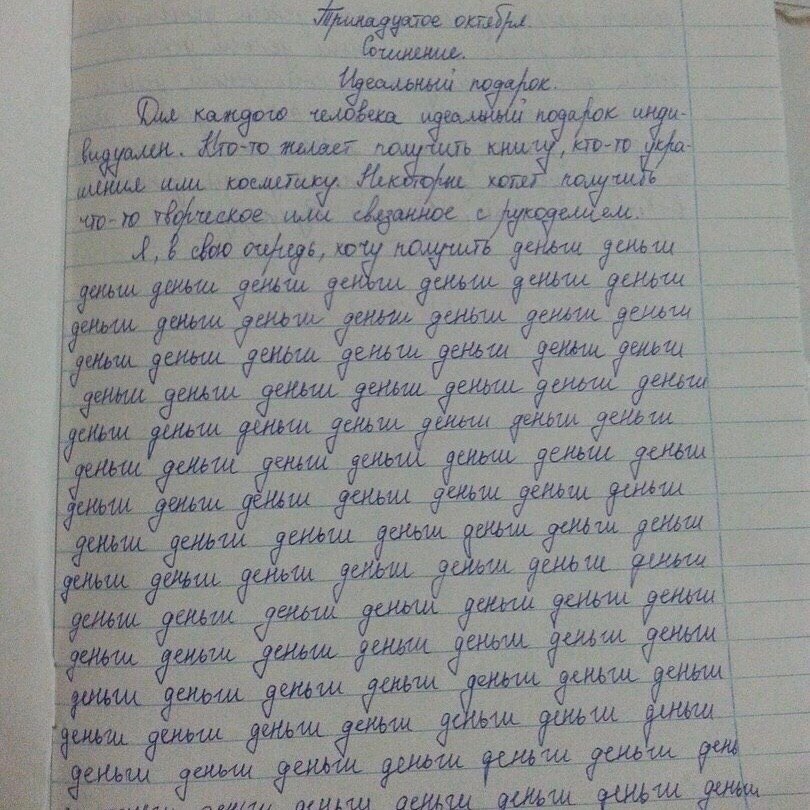 Тринадцатое октября.
Сочинение.
Идеальный подарок.
Для каждого человека идеальный подарок инди-
видуален. Кто-то желает получить книгу, кто-то укра-
шения или косметику. Некоторые хотят получить
что-то творческое или связанное с рукоделием.
Я, в свою очередь, хочу получить деньги деньги
деньги деньги деньги деньги деньги деньги деньги
деньги деньги деньги деньги деньги деньги деньги
деньги деньги деньги деньги деньги деньги деньги
деньги деньги деньги деньги деньги деньги деньги
деньги деньги деньги деньги деньги деньги деньги
деньги деньги деньги деньги деньги деньги деньги
деньги деньги деньги деньги деньги деньги деньги
деньги деньги деньги деньги деньги деньги деньги
деньги деньги деньги деньги деньги деньги деньги
деньги деньги деньги деньги деньги деньги деньги
деньги деньги деньги деньги деньги деньги деньги
деньги деньги деньги деньги деньги деньги деньги
деньги деньги деньги деньги деньги деньги деньги
деньги деньги деньги деньги деньги деньги день
деньги деньги деньги деньги деньги деньги